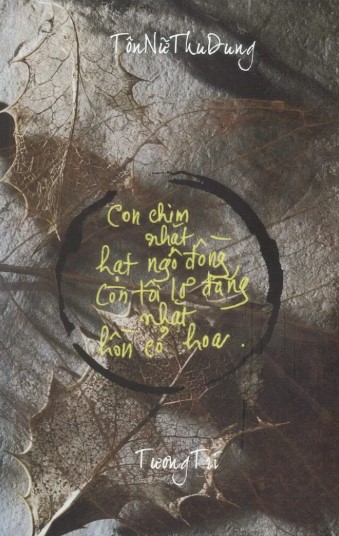 TônNữThuDung
Con chim
nhặt
hạt ngô đồng,
Còn tôi lơ đãng
nhặt
hồn cỏ hoa.
TươngTri